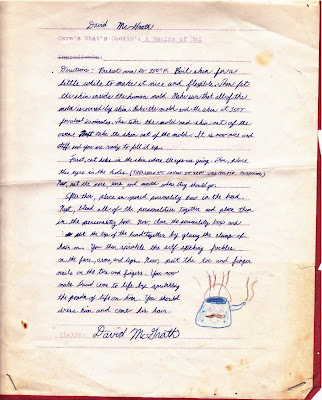 David McGrath
Here's What's Cookin': A Recipe of Me!
Ingredients:
Directions: Preheat oven to 350°F. Boil skin for a
little while to make it nice and flexible. Then put
the skin inside the human mold. Make sure that all of the
mold is covered by skin. Bake the mold and the skin at 350°
for about 20 minutes. Then take the mold and skin out of the
oven. Next take the skin out of the mold. It is now nice and
stiff and you are ready to fill it up.
First, cut holes in the skin where the eyes are going. Then, place
the eyes in the holes.
Now, put the nose, and mouth where they should go.
After this, place in special personality box in the head.
Next, blend all of the personalities together and place them
in the personality box. Now, close the personality box and
set the top of the head together by gluing the clump of
hair on. You then sprinkle the self sticking freckles
on the face, arms, and legs. Now, put the toe and finger
nails on the toes and fingers. You now
make David come to life by sprinkling
the powder of life on him. You should
dress him and comb his hair.
Yields: David McGrath